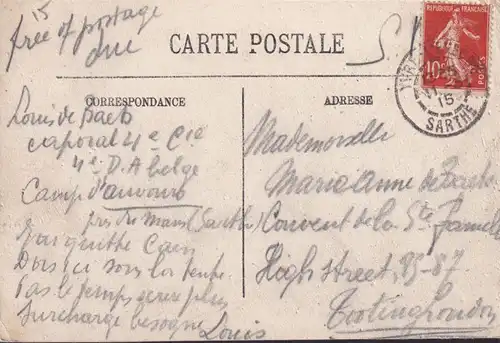 15
free of postage
due
CARTE POSTALE
S.
REPUBLIQUE FRANÇAISE
10c
POSTES
15
SARTHE
CORRESPONDANCE
Louis de Baets
caporal 4e Cie
4e D.A belge
Camp d'auvours
près du Mans (Sarthe)
J'ai quitté Caen
Dors ici sous la tente
Pas le temps
Surcharge besogne
Louis
ADRESSE
Mademoiselle
Maria Anne de
Couvent de la Ste Famille
High street, 85-87
Tooting London